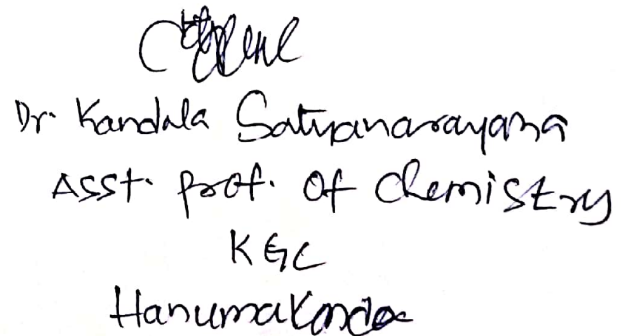 Dr. Kandala Satyanarayana
Asst. Prof. Of Chemistry
KGC
Hanumakonda